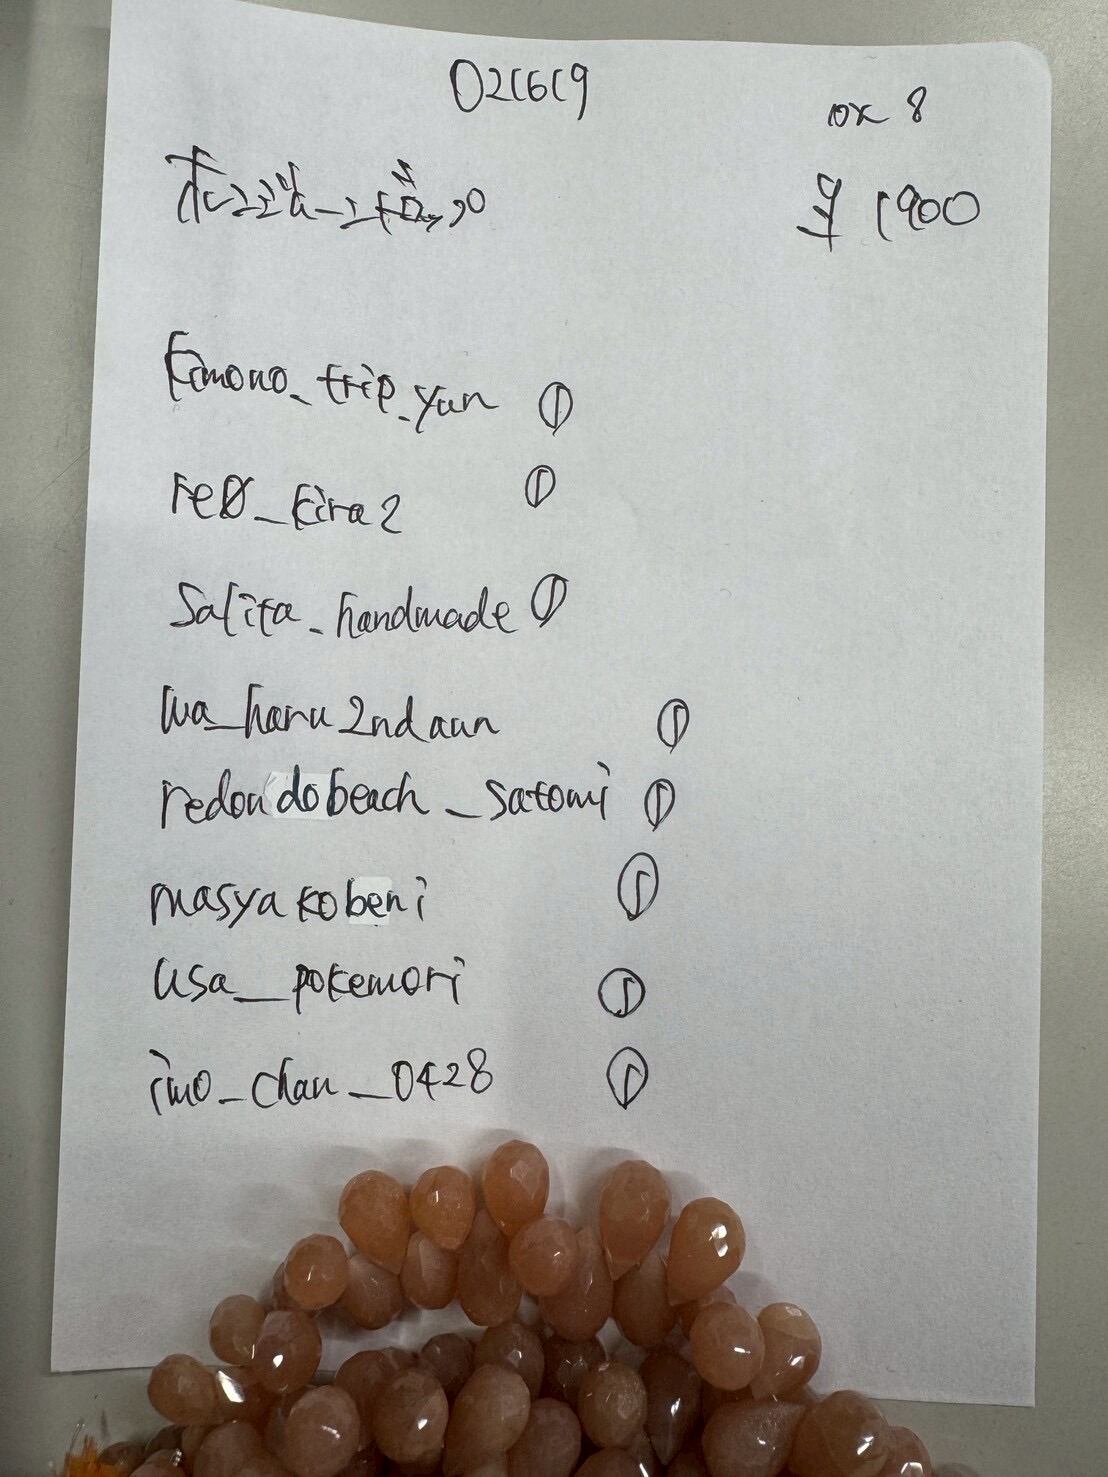 021619
or 8
¥ 1900
kimono_trip_yun ①
re0_kira2 ①
Salita_handmade ①
wa_haru2ndaun ①
redondobeach_satomi ①
masyakobeni ①
usa__pokemori ①
imo_chan__0428 ①